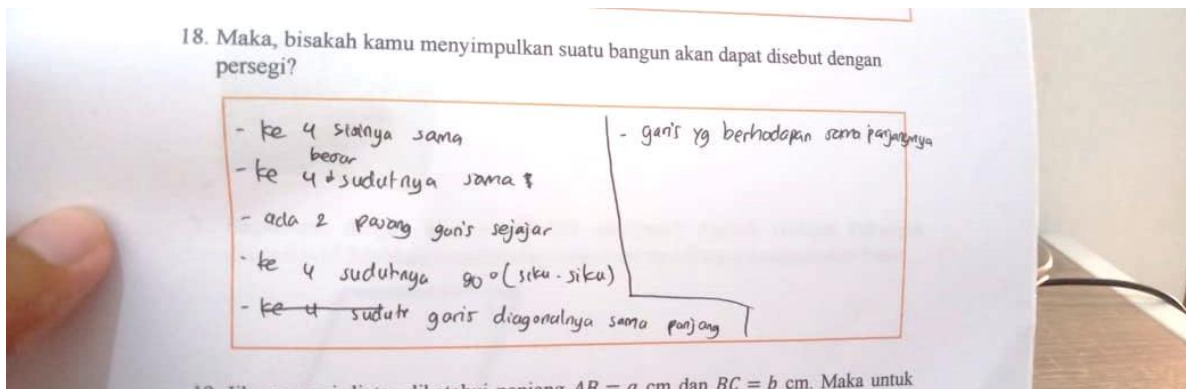 18. Maka, bisakah kamu menyimpulkan suatu bangun akan dapat disebut dengan
persegi?
- ke 4 sisinya sama
- ke 4 besar sudutnya sama
- ada 2 pasang garis sejajar
- ke 4 sudutnya 90° (siku-siku)
- ke 4 sudut garis diagonalnya sama panjang
- garis yg berhadapan sama panjangnya
panjang AB = a cm dan BC = b cm. Maka untuk